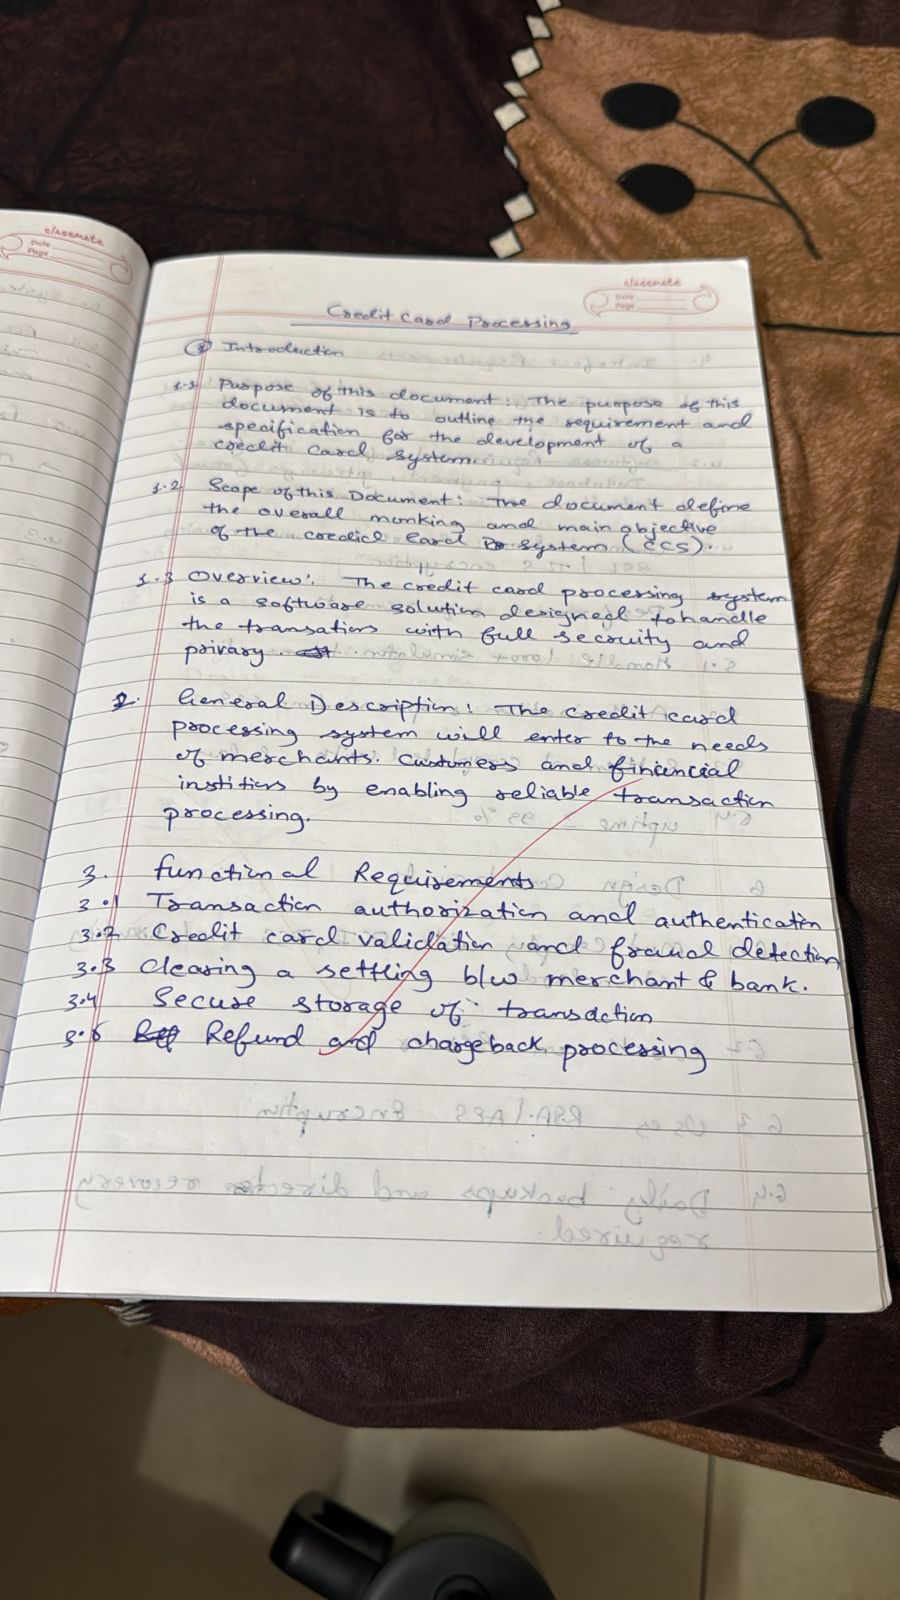 classmate
Date
Page
classmate
Date
Page
Credit Card Processing
① Introduction
1.1 Purpose of this document: The purpose of this
document is to outline the requirement and
specification for the development of a
credit card system.
1.2 Scope of this Document: The document define
the overall monking and main objective
of the credicl Card system (CCS).
1.3 Overview: The credit card processing system
is a software solution designed to handle
the transations with full secruity and
privary.
2. General Description: The credit card
processing system will enter to the needs
of merchants. Customers and finincial
institions by enabling reliable transaction
processing.
3. functional Requirements
3.1 Transaction authorization and authentication
3.2 Credit card validation and fraual detection
3.3 Clearing a settling b/w merchant & bank.
3.4 Secure storage of transaction
3.5 Refund and chargeback processing
6.3 Uses RSA/AES Encryption
6.4 Daily backups and recovery
required.